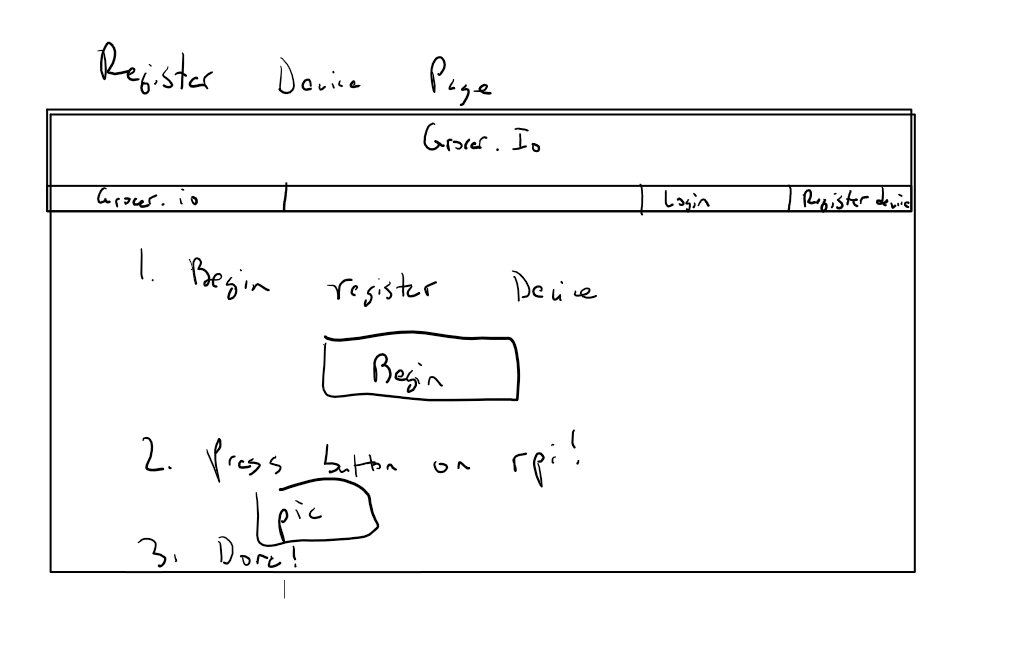 Register Device Page
Grocer. Io
Grocer. io Login Register device
1. Begin register Device
Begin
2. Press button on rpi!
pic
3. Done!